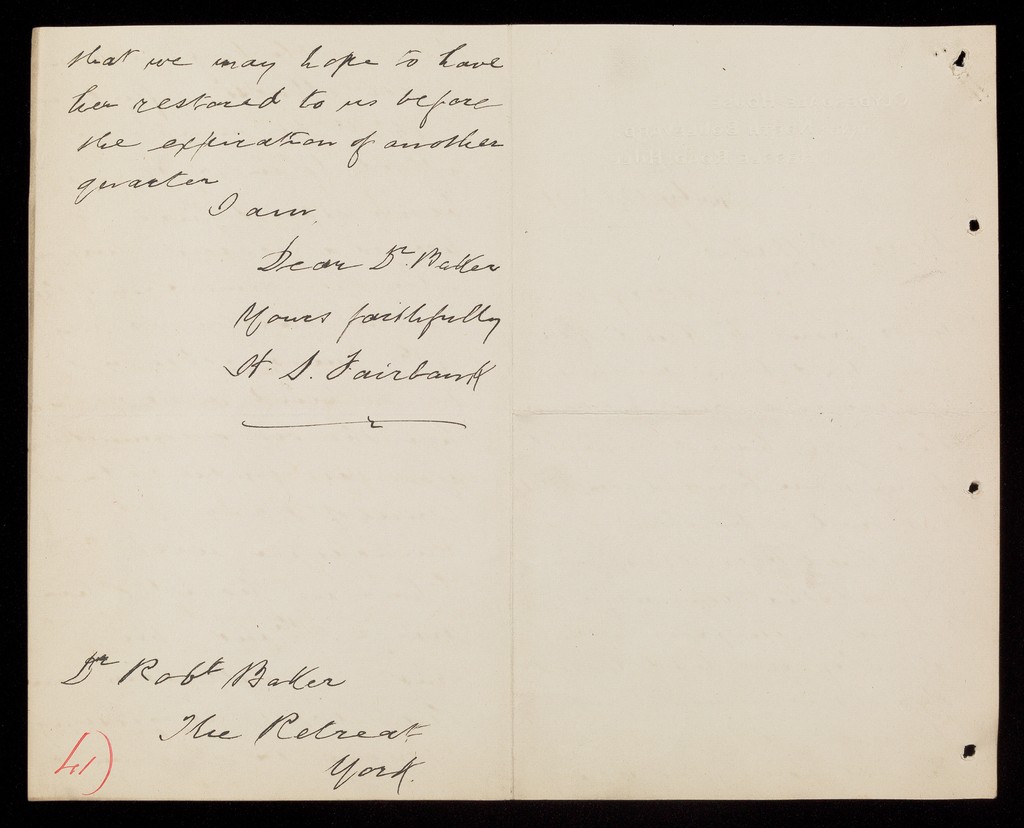 that we may hope to have
her restored to us before
the expiration of another
quarter
I am,
Dear Dr. Baker
Yours faithfully
H. S. Fairbank
Dr Robt Baker
The Retreat
York.
41)